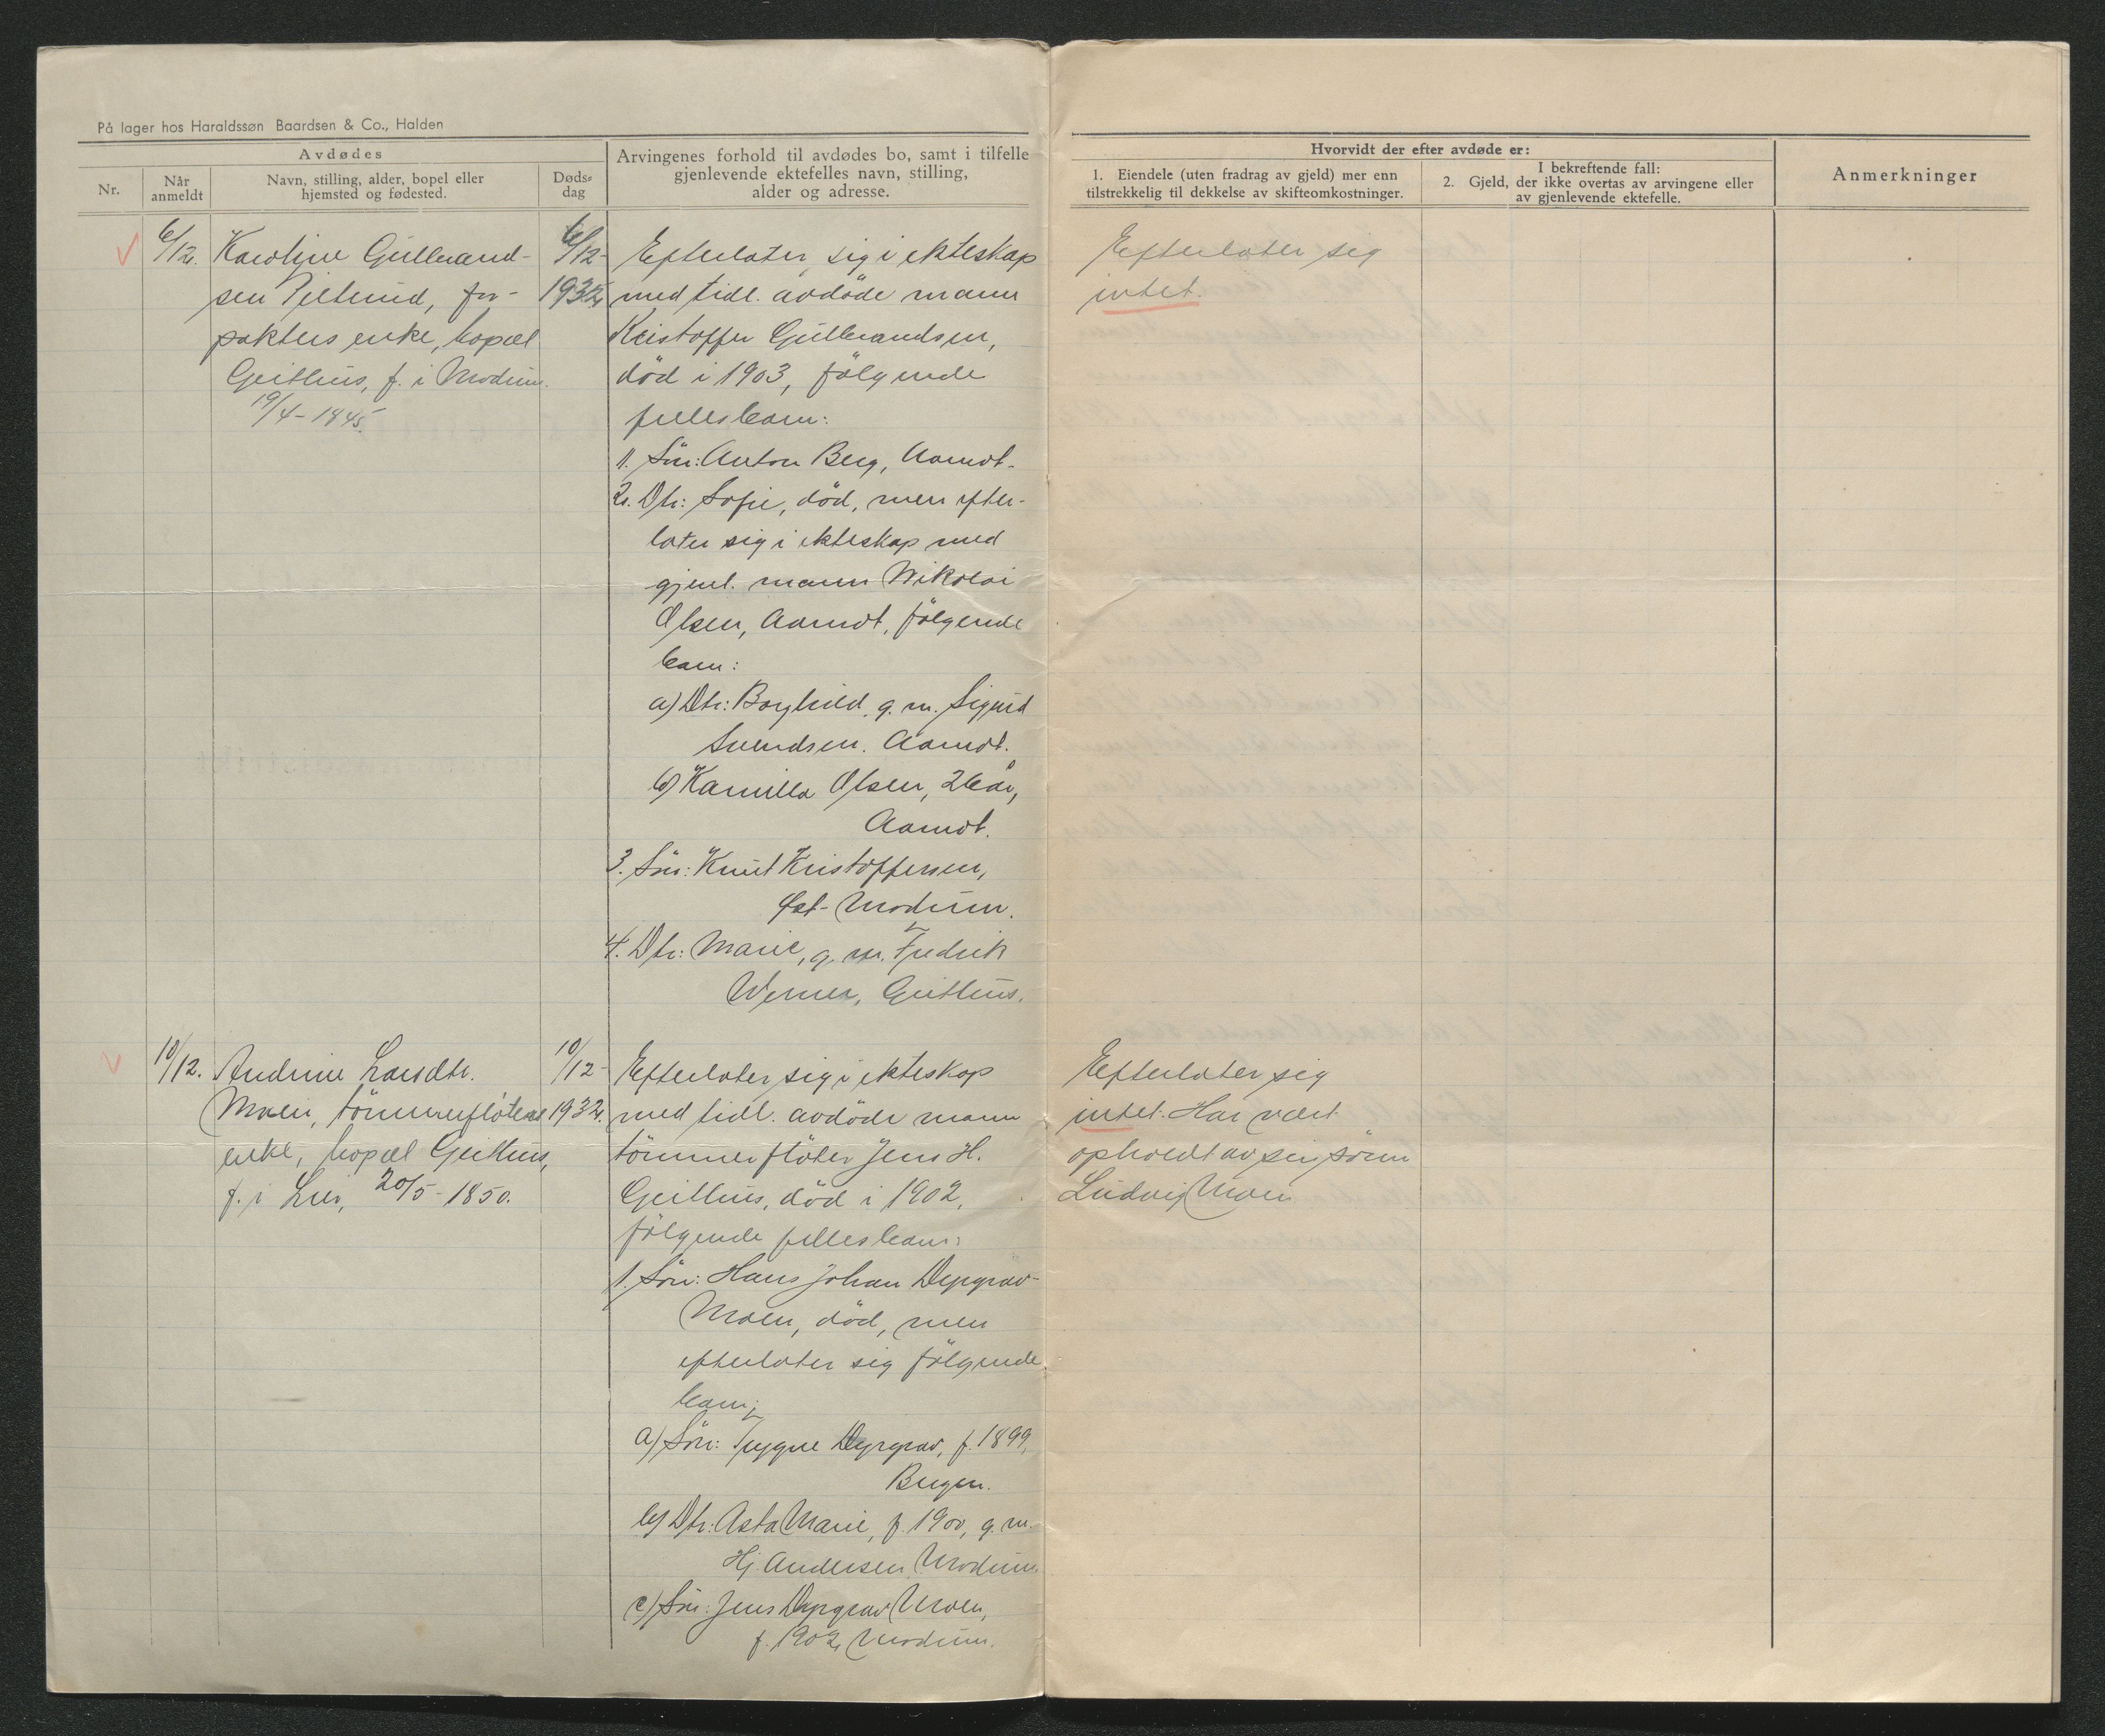 På lager hos Haraldssøn Baardsen & Co., Halden
Avdødes
Nr.
Når
anmeldt
Navn, stilling, alder, bopel eller
hjemsted og fødested.
Døds-
dag
Arvingenes forhold til avdødes bo, samt i tilfelle
gjenlevende ektefelles navn, stilling,
alder og adresse.
Hvorvidt der efter avdøde er:
1. Eiendele (uten fradrag av gjeld) mer enn
tilstrekkelig til dekkelse av skifteomkostninger.
I bekreftende fall:
2. Gjeld, der ikke overtas av arvingene eller
av gjenlevende ektefelle.
Anmerkninger
6/12.
Karoline Gulbrand-
sen for-
pakters enke, bopæl
Geithus, f. i Modum
19/4-1845.
6/12-
1932
Efterlater sig i ekteskap
med tidl. avdöde mann
Kristoffer Gulbrandsen,
död i 1903, fölgende
fellesbarn:
1. Sön: Anton Berg, Aamot.
2. Dtr: Sofie, död, men efter-
later sig i ekteskap med
gjenl. mann Nikolai
Olsen, Aamot, fölgende
barn:
a) Dtr: Borghild, g. m. Sigurd
Svendsen. Aamot.
b) Kamilla Olsen, 26 år,
Aamot.
3. Sön: Knut Kristoffersen,
Øst-Modum.
4. Dtr: Marie, g. m. Fredrik
Werner, Geithus.
Efterlater sig
intet.
10/12.
Andrine Larsdtr.
Moen, tömmerflöters
enke, bopæl Geithus,
f. i Lier, 20/5-1850.
10/12-
1932.
Efterlater sig i ekteskap
med tidl. avdöde mann
tömmerflöter Jens H.
Geithus, död i 1902,
fölgende fellesbarn:
1. Sön: Hans Johan Dyrgrav-
Moen, död, men
efterlater sig fölgende
barn:
a) Sön: Trygve Dyrgrav, f. 1899,
Bergen.
b) Dtr: Asta Marie, f. 1900, g. m.
Hj. Andersen, Modum.
c) Sön: Jens Dyrgrav Moen,
f. 1902, Modum.
Efterlater sig
intet. Har vært
opholdt av sin sönn
Ludvig Moen